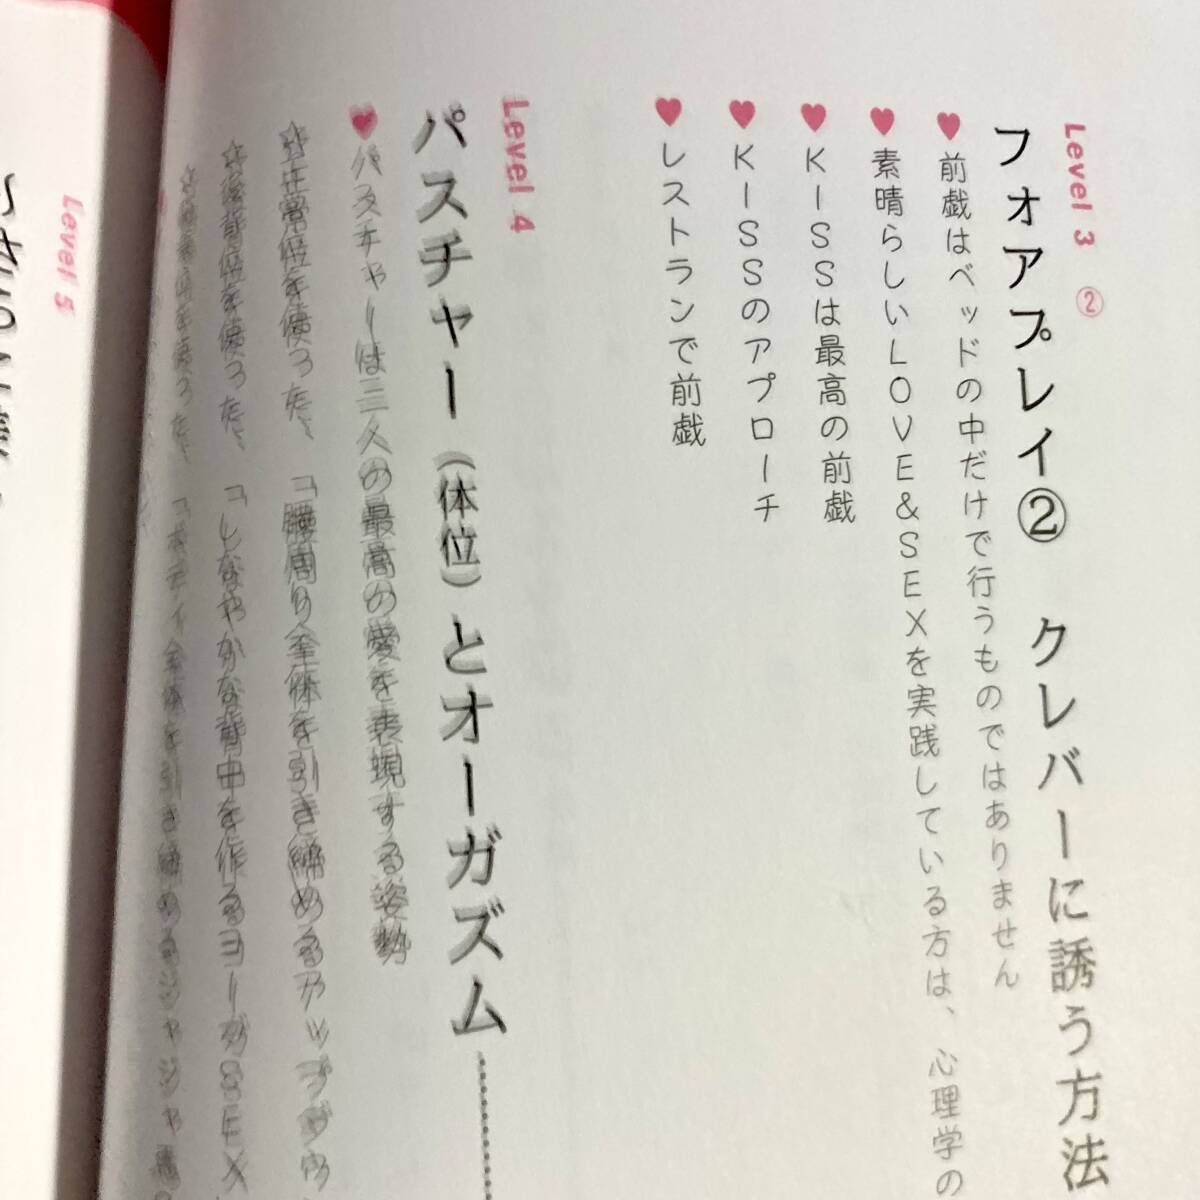 Level 3 ②
フォアプレイ② クレバーに誘う方法
♥前戯はベッドの中だけで行うものではありません
♥素晴らしいLOVE&SEXを実践している方は、心理学の
♥KISSは最高の前戯
♥KISSのアプローチ
♥レストランで前戯
Level 4
パスチャー(体位)とオーガズム
♥パスチャーは二人の最高の愛を表現する姿勢
☆正常位を使った、「腰周り全体を引き締めるアップダウ
☆後背位を使った、「しなやかな背中を作るヨーガSEX
を使った、「ボディ全体を引き締める
Level 5